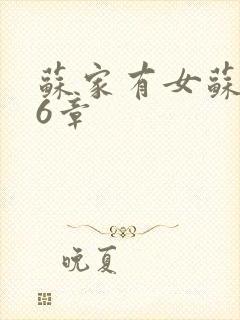 蘇家有女蘇
6章
晚夏